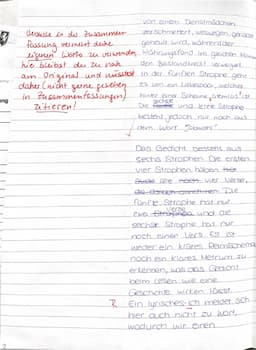 Versuche in der Zusammen-
fassung vermehrt deine
eigenen Worte zu verwenden,
hier bleibst du zu nah
am Original und müsstest
daher (nicht gerne gesehen
in Zusammenfassungen)
zitieren!
von einem Dienstmädchen
zerschmettert, weswegen
gehauen wird, während der
Währungsfond im gleichen
den Baslandkredit verweigert.
In der fünften Strophe geht
es um ein Liebespaar, welches
hinter einer Scheune
sechste
Die und letzte Strophe
besteht jedoch nur noch aus
dem Wort
Das Gedicht besteht aus
sechs Strophen. Die ersten
vier Strophen haben
alle noch vier Verse,
Die
fünfte Strophe hat nur
Verse
zwei Strophen und die
sechste Strophe hat nur
noch einen Vers. Es ist
weder ein klares Reimschema
noch ein klares Metrum zu
erkennen, was das Gedicht
beim Lesen wie eine
Geschichte wirken lässt.
R Ein lyrisches-ich meldet sich
hier auch nicht zu Wort,
wodurch wir einen